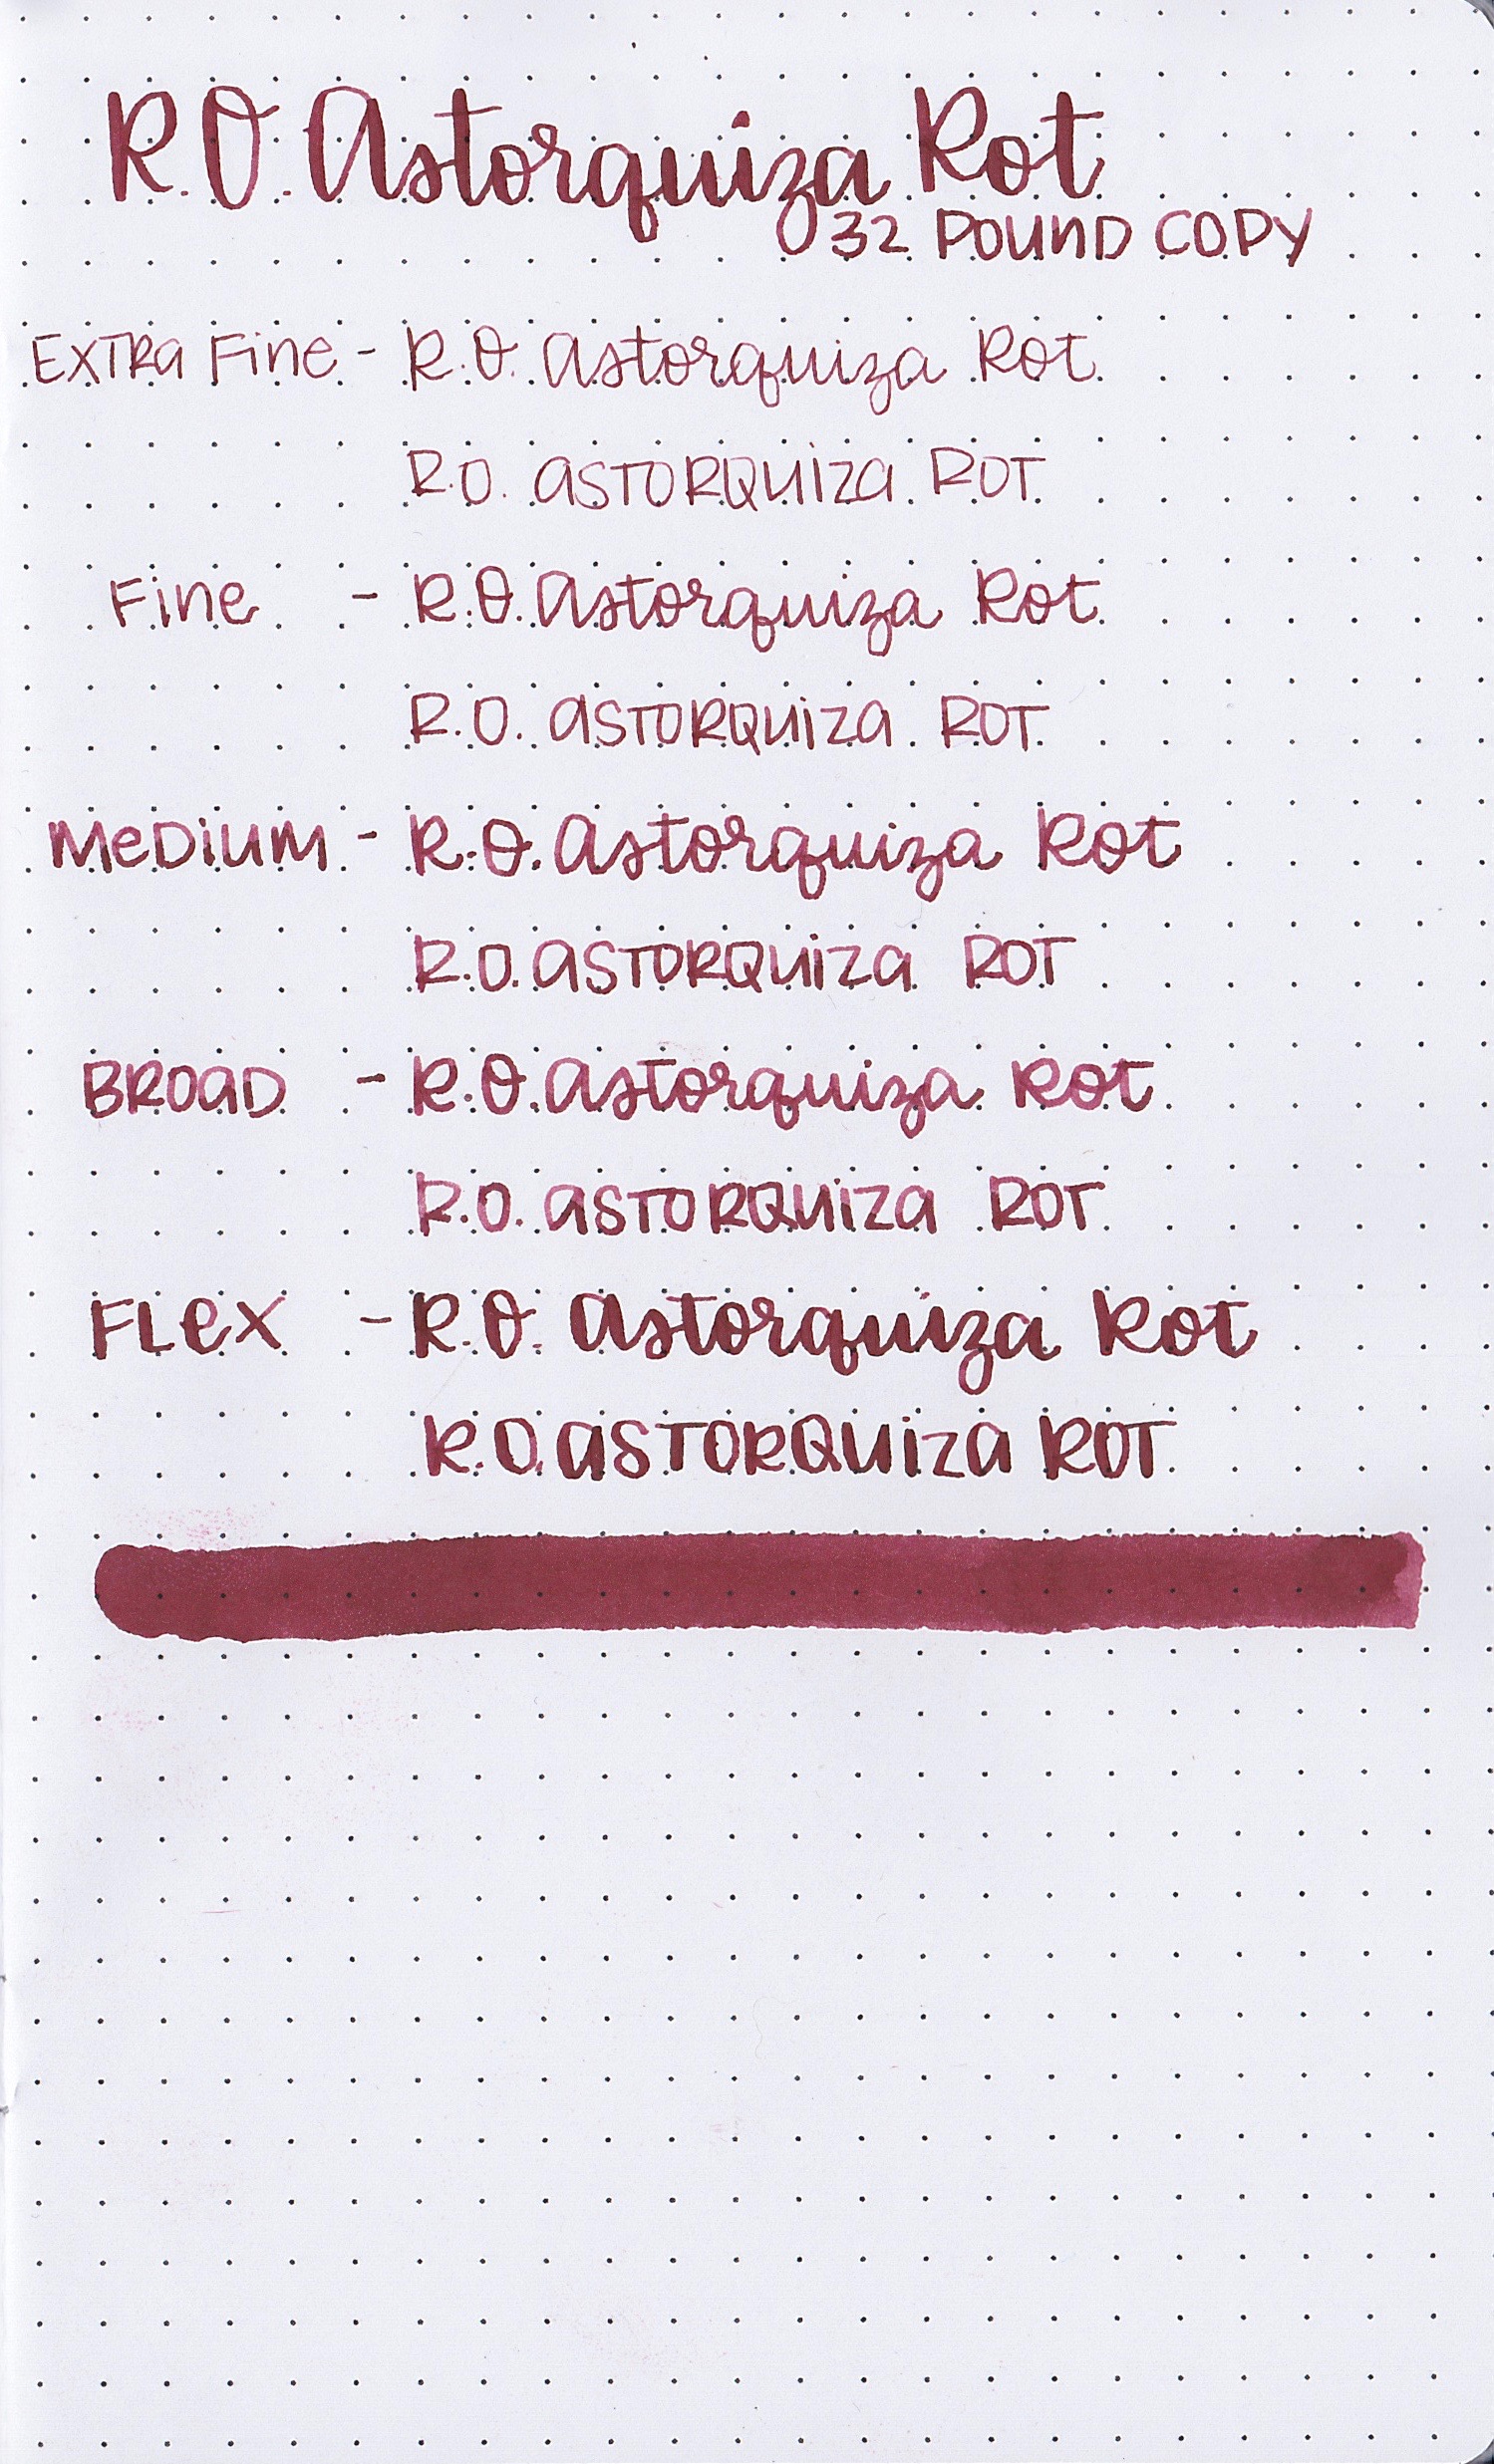 R.O. Astorquiza Rot
32 POUND COPY
EXTRA FINE - R.O. Astorquiza Rot
R.O. ASTORQUIZA ROT
FINE - R.O. Astorquiza Rot
R.O. ASTORQUIZA ROT
MEDIUM - R.O. Astorquiza Rot
R.O. ASTORQUIZA ROT
BROAD - R.O. Astorquiza Rot
R.O. ASTORQUIZA ROT
FLEX - R.O. Astorquiza Rot
R.O. ASTORQUIZA ROT